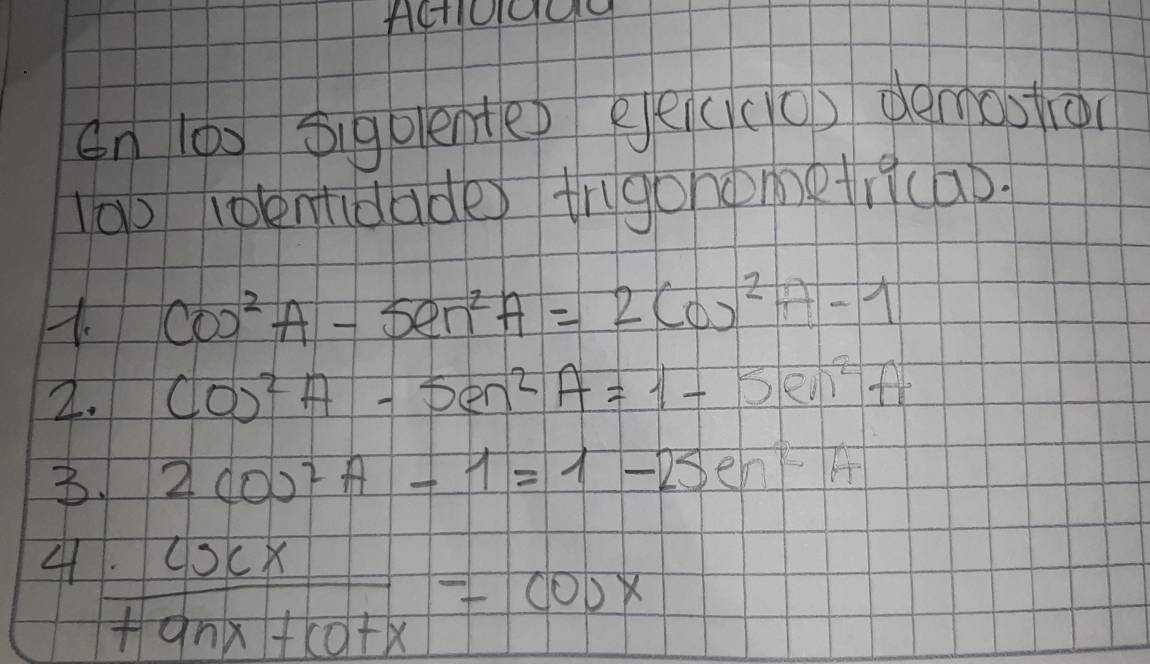 En los siguientes ejercicios demostrar
las identidades trigonometricas.
1. Cos²A - Sen²A = 2Cos²A - 1
2. Cos²A - Sen²A = 1 - Sen²A
3. 2 Cos²A - 1 = 1 - 2Sen²A
4. cscx
= cosx
tanx + cotx